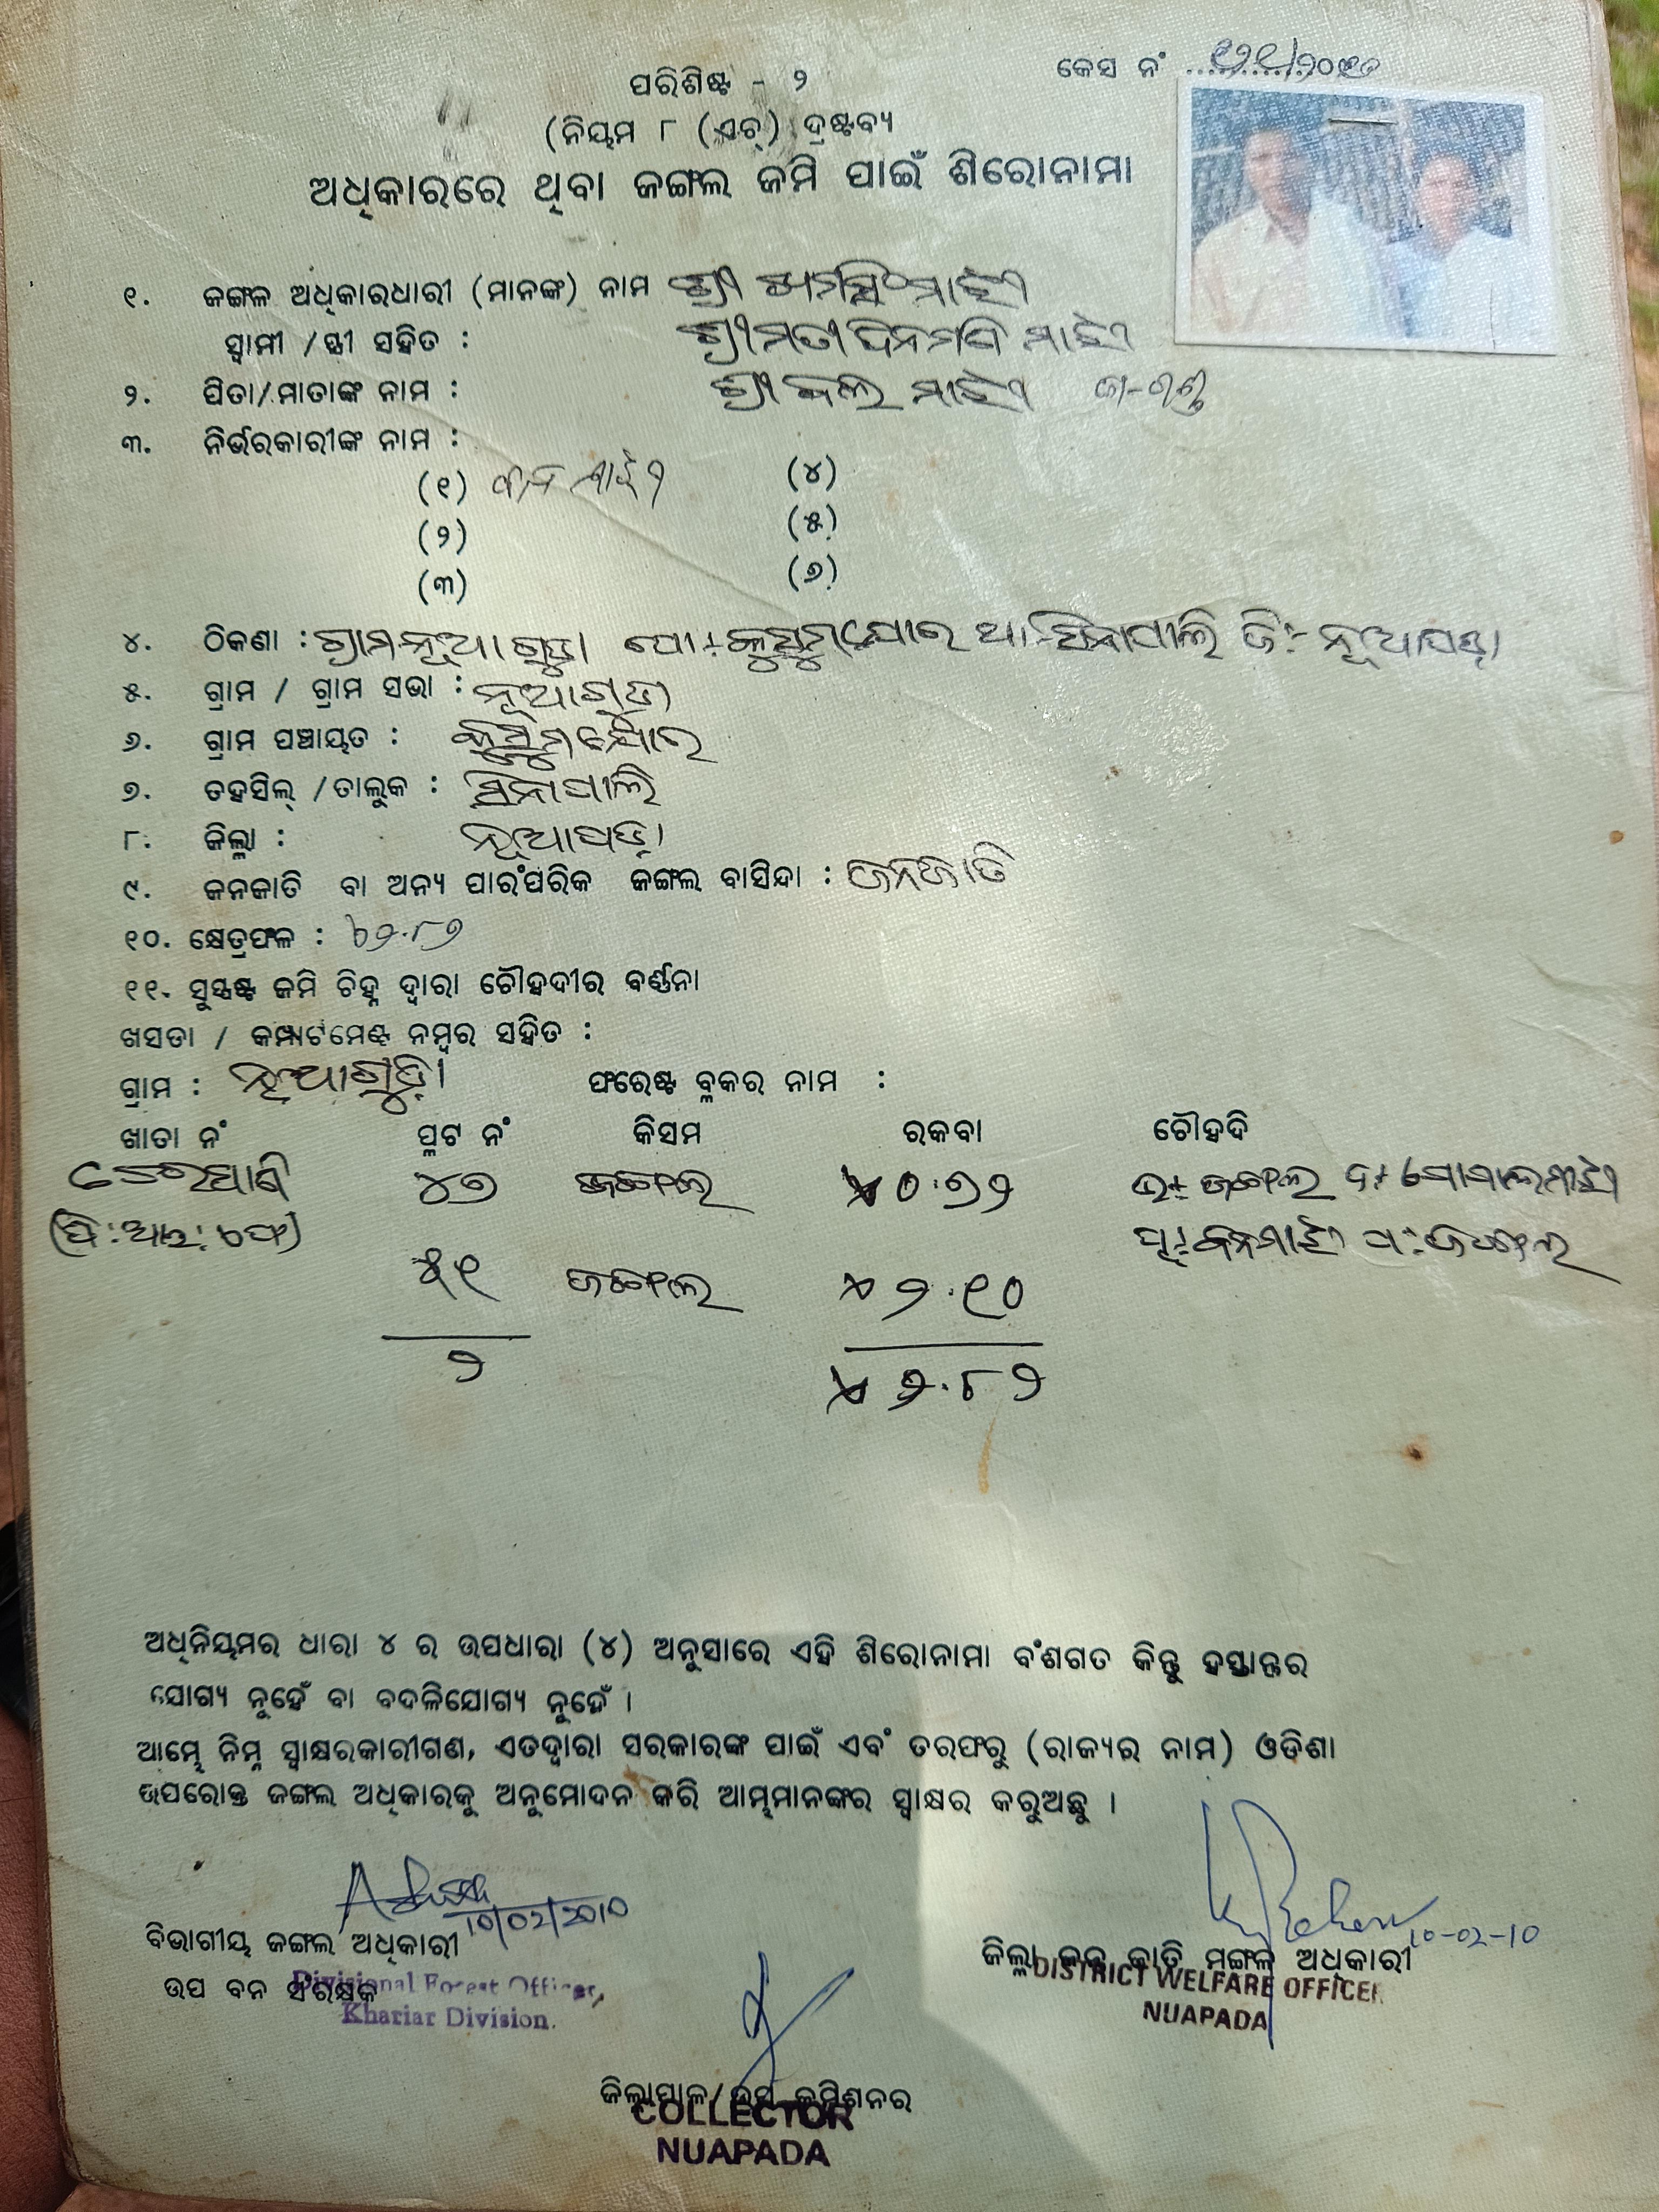 ପରିଶିଷ୍ଟ - ୨
କେସ ନଂ
(ନିୟମ ୮ (ଏଚ୍) ଦ୍ରଷ୍ଟବ୍ୟ
ଅଧିକାରରେ ଥିବା ଜଙ୍ଗଲ ଜମି ପାଇଁ ଶିରୋନାମା
୧. ଜଙ୍ଗଳ ଅଧିକାରଧାରୀ (ମାନଙ୍କ) ନାମ ଶ୍ରୀ
ସ୍ୱାମୀ /ସ୍ତ୍ରୀ ସହିତ : ଶ୍ରୀମତୀ ଦିନମଣି ମାଝି
୨. ପିତା/ମାତାଙ୍କ ନାମ : ଶ୍ରୀ ମାଝି
୩. ନିର୍ଭରକାରୀଙ୍କ ନାମ :
(୧) (୪)
(୨) (୫)
(୩) (୬)
୪. ଠିକଣା : ଗ୍ରାମ-ନୂଆଗୁଡା ପୋ:- ଥା-ସିନାପାଲି ଜି:- ନୂଆପଡ଼ା
୫. ଗ୍ରାମ / ଗ୍ରାମ ସଭା : ନୂଆଗୁଡା
୬. ଗ୍ରାମ ପଞ୍ଚାୟତ :
୭. ତହସିଲ୍ /ତାଲୁକ : ସିନାପାଲି
୮. ଜିଲ୍ଲା : ନୂଆପଡ଼ା
୯. ଜନଜାତି ବା ଅନ୍ୟ ପାରଂପରିକ ଜଙ୍ଗଲ ବାସିନ୍ଦା : ଜନଜାତି
୧୦. କ୍ଷେତ୍ରଫଳ :
୧୧. ସୁସ୍ପଷ୍ଟ ଜମି ଚିହ୍ନ ଦ୍ୱାରା ଚୌହଦୀର ବର୍ଣ୍ଣନା
ଖସଡା / କମ୍ପାର୍ଟମେଣ୍ଟ ନମ୍ବର ସହିତ :
ଗ୍ରାମ : ନୂଆଗୁଡ଼ା ଫରେଷ୍ଟ ବ୍ଲକର ନାମ :
ଖାତା ନଂ ପ୍ଲଟ ନଂ କିସମ ରକବା ଚୌହଦି
୪୭ ଜଙ୍ଗଲ ୦.୭୨ ଉ:- ଜଙ୍ଗଲ
୫୧ ଜଙ୍ଗଲ ୨.୧୦
୨ ୨.୮୨
ଅଧିନିୟମର ଧାରା ୪ ର ଉପଧାରା (୪) ଅନୁସାରେ ଏହି ଶିରୋନାମା ବଂଶଗତ କିନ୍ତୁ ହସ୍ତାନ୍ତର
ଯୋଗ୍ୟ ନୁହେଁ ବା ବଦଳିଯୋଗ୍ୟ ନୁହେଁ ।
ଆମ୍ଭେ ନିମ୍ନ ସ୍ୱାକ୍ଷରକାରୀଗଣ, ଏତଦ୍ୱାରା ସରକାରଙ୍କ ପାଇଁ ଏବଂ ତରଫରୁ (ରାଜ୍ୟର ନାମ) ଓଡିଶା
ଉପରୋକ୍ତ ଜଙ୍ଗଲ ଅଧିକାରକୁ ଅନୁମୋଦନ କରି ଆମ୍ଭମାନଙ୍କର ସ୍ୱାକ୍ଷର କରୁଅଛୁ ।
10/02/2010
10-02-10
ବିଭାଗୀୟ ଜଙ୍ଗଲ ଅଧିକାରୀ
ଜିଲ୍ଲା ଜନ ଜାତି ମଙ୍ଗଳ ଅଧିକାରୀ
ଉପ ବନ ସଂରକ୍ଷକ
Divisional Forest Officer,
Khariar Division.
DISTRICT WELFARE OFFICER
NUAPADA
ଜିଲ୍ଲାପାଳ/ଉପ କମିଶନର
COLLECTOR
NUAPADA